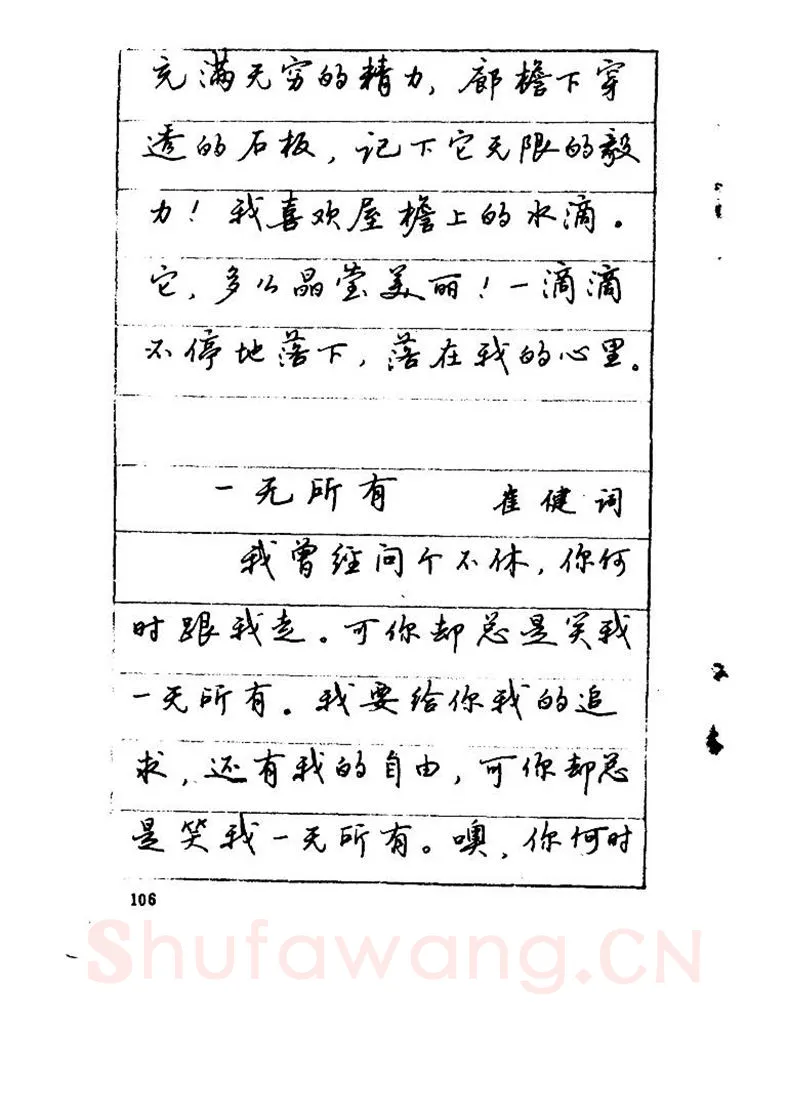 充满无穷的精力,廊檐下穿
透的石板,记下它无限的毅
力!我喜欢屋檐上的水滴。
它,多么晶莹美丽!一滴滴
不停地落下,落在我的心里。
一无所有 崔健词
我曾经问个不休,你何
时跟我走。可你却总是笑我
一无所有。我要给你我的追
求,还有我的自由,可你却总
是笑我一无所有。噢,你何时
106
Shufawang.CN